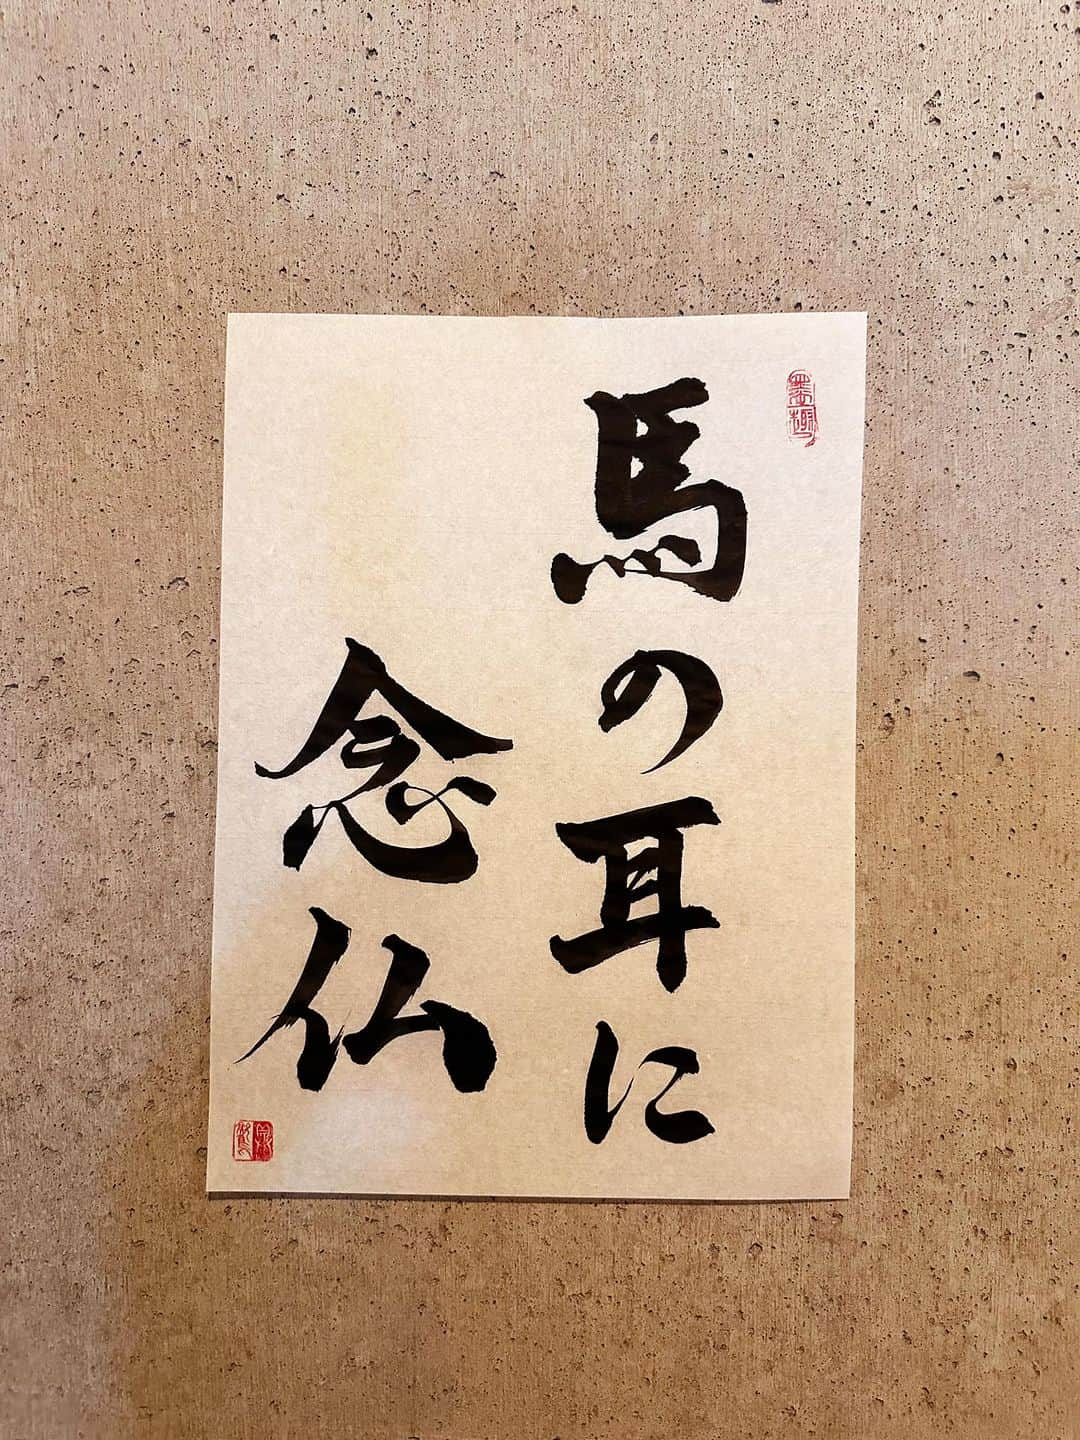 馬の耳に
念仏